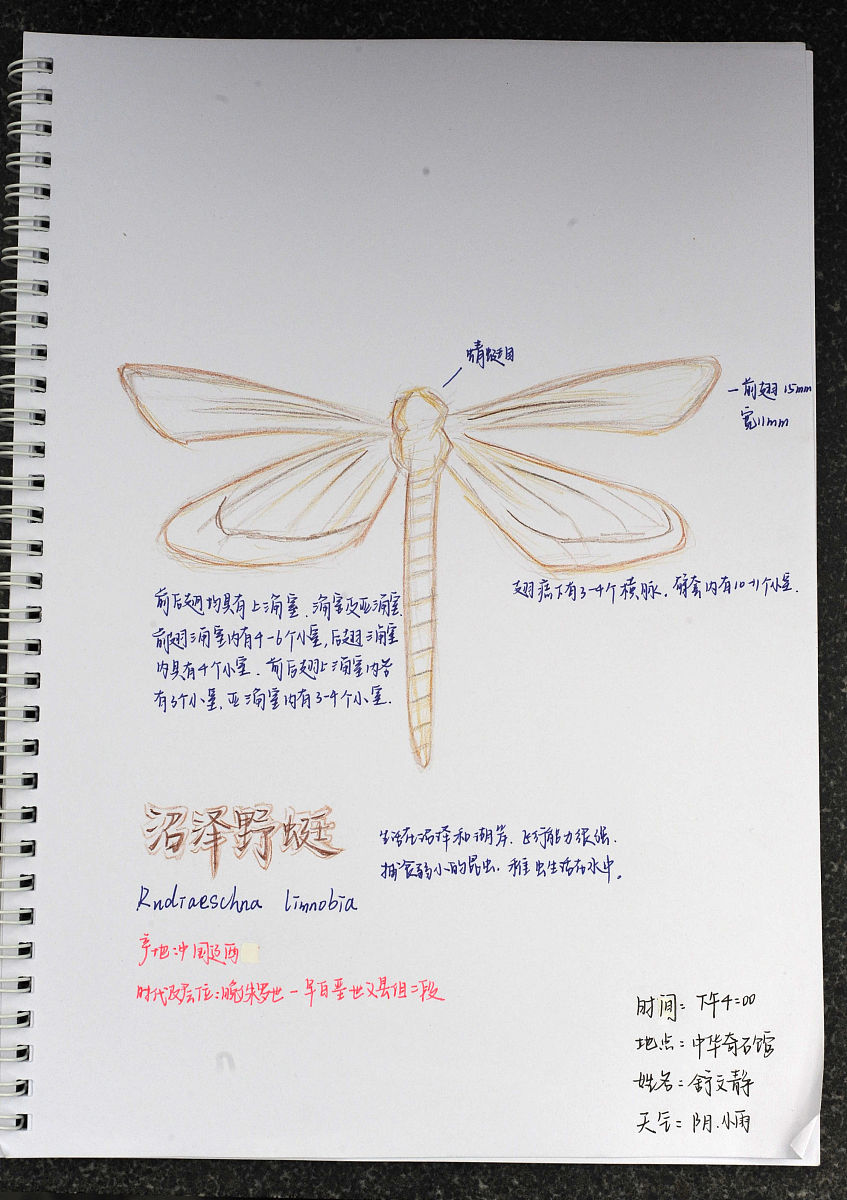 蜻蜓目
一前翅 15mm
宽11mm
翅痣下有3-4个横脉，臂套内有10-11个小室.
前后翅均具有上三角室、三角室及亚三角室.
前翅三角室内有4-6个小室，后翅三角室
内具有4个小室. 前后翅上三角室内各
有3个小室，亚三角室内有3-4个小室.
沼泽野蜓
生活在沼泽和湖岸. 飞行能力很强.
捕食弱小的昆虫. 稚虫生活在水中。
Rudiaeschna limnobia
产地：中国辽西
时代及层位：晚侏罗世-早白垩世义县组二段
时间：下午4:00
地点：中华奇石馆
姓名：舒文静
天气：阴.小雨